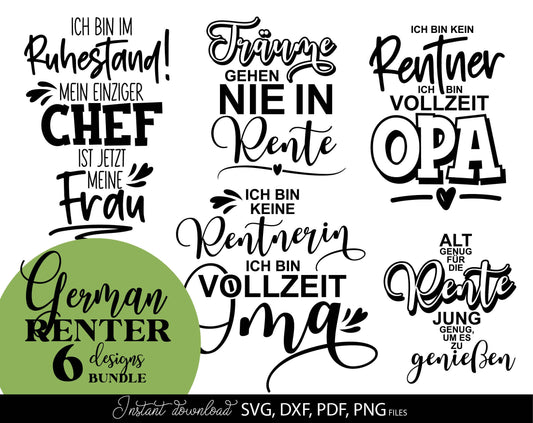 ICH BIN IM
Ruhestand!
MEIN EINZIGER
CHEF
IST JETZT
MEINE
Frau
Träume
GEHEN
NIE IN
Rente
ICH BIN KEIN
Rentner
ICH BIN
VOLLZEIT
OPA
ICH BIN
KEINE
Rentnerin
ICH BIN
VOLLZEIT
Oma
ALT
GENUG
FÜR
DIE
Rente
JUNG
GENUG,
UM ES
ZU
genießen
German
RENTER
6 designs
BUNDLE
Instant download SVG, DXF, PDF, PNG FILES